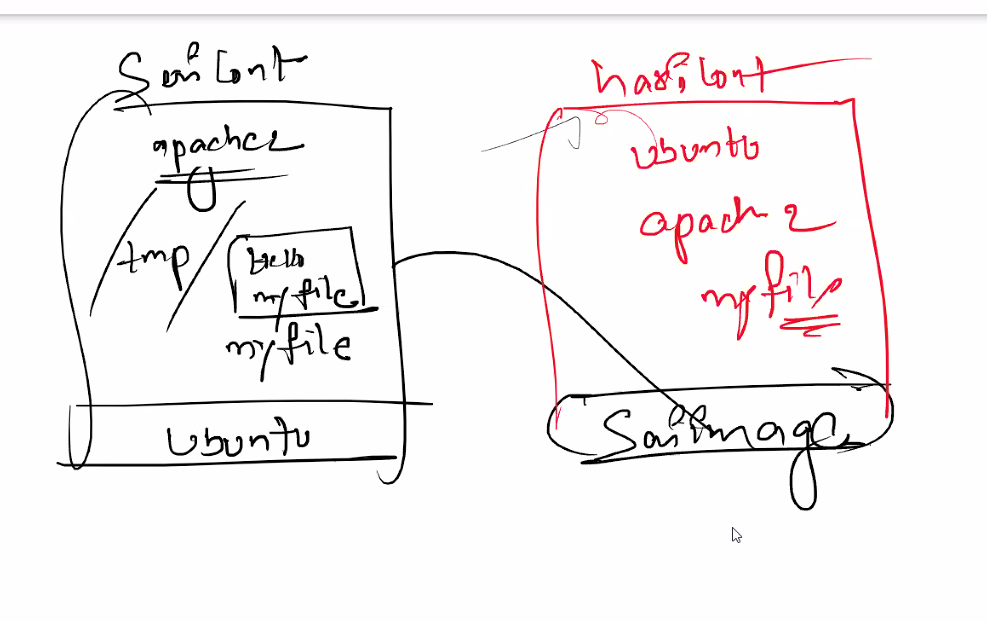 SaiCont
apache2
tmp
Hello
myfile
myfile
Ubuntu
hariCont
Ubuntu
apach 2
myfile
Saiimage